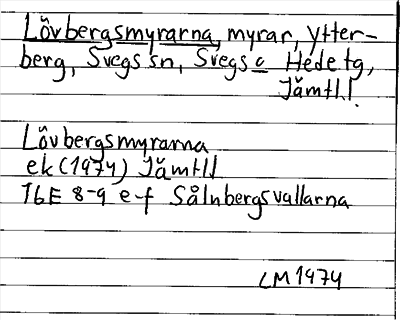 Lövbergsmyrarna, myrar, Ytter-
berg, Svegs sn, Svegs o Hede tg,
Jämtl.
Lövbergsmyrarna
ek (1974) Jämtl
16E 8-9 e-f Sålnbergsvallarna
LM 1974